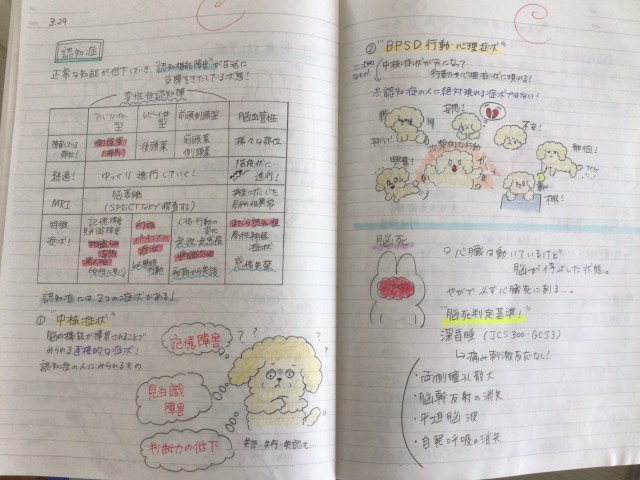 3.29
認知症
正常な知能が低下していき、認知機能障害が生活に
支障をきたしている状態!
変性性認知障
アルツハイマー型
レビー小体型
前頭側頭型
脳血管性
障害している部位!
側頭葉
(海馬)
後頭葉
前頭葉
側頭葉
様々な部位
経過!
ゆっくり進行していく!
階段状に
進行!
MRI
脳萎縮
(SPECTなどで精査する)
特徴
症状!
記憶障害
見当識障害
幻視
パーキンソン
症状
人格・行動の変化
まだら認知症
局所神経
症状
感情失禁
認知症には、2つの症状がある!
① "中核症状"
脳の機能が障害されることで
みられる直接的な症状!
認知症の人にみられるもの
記憶障害
見当識
障害
判断力の低下
失語・失行・失認など…
???
② "BPSD 行動・心理症状"
中核症状が元になって
行動や心理症状に現れる!
※認知症の人に絶対現れる症状ではない!
妄想!
抑うつ!
不安!
興奮!
攻撃的な言動
徘徊!
不眠!
脳死
心臓は動いているけど
脳が停止した状態。
やがて、必ず心臓死に到る…。
"脳死判定基準!"
深昏睡 (JCS300・GCS3)
↳痛み刺激反応なし!
・両側瞳孔散大
・脳幹反射の消失
・平坦脳波
・自発呼吸の消失